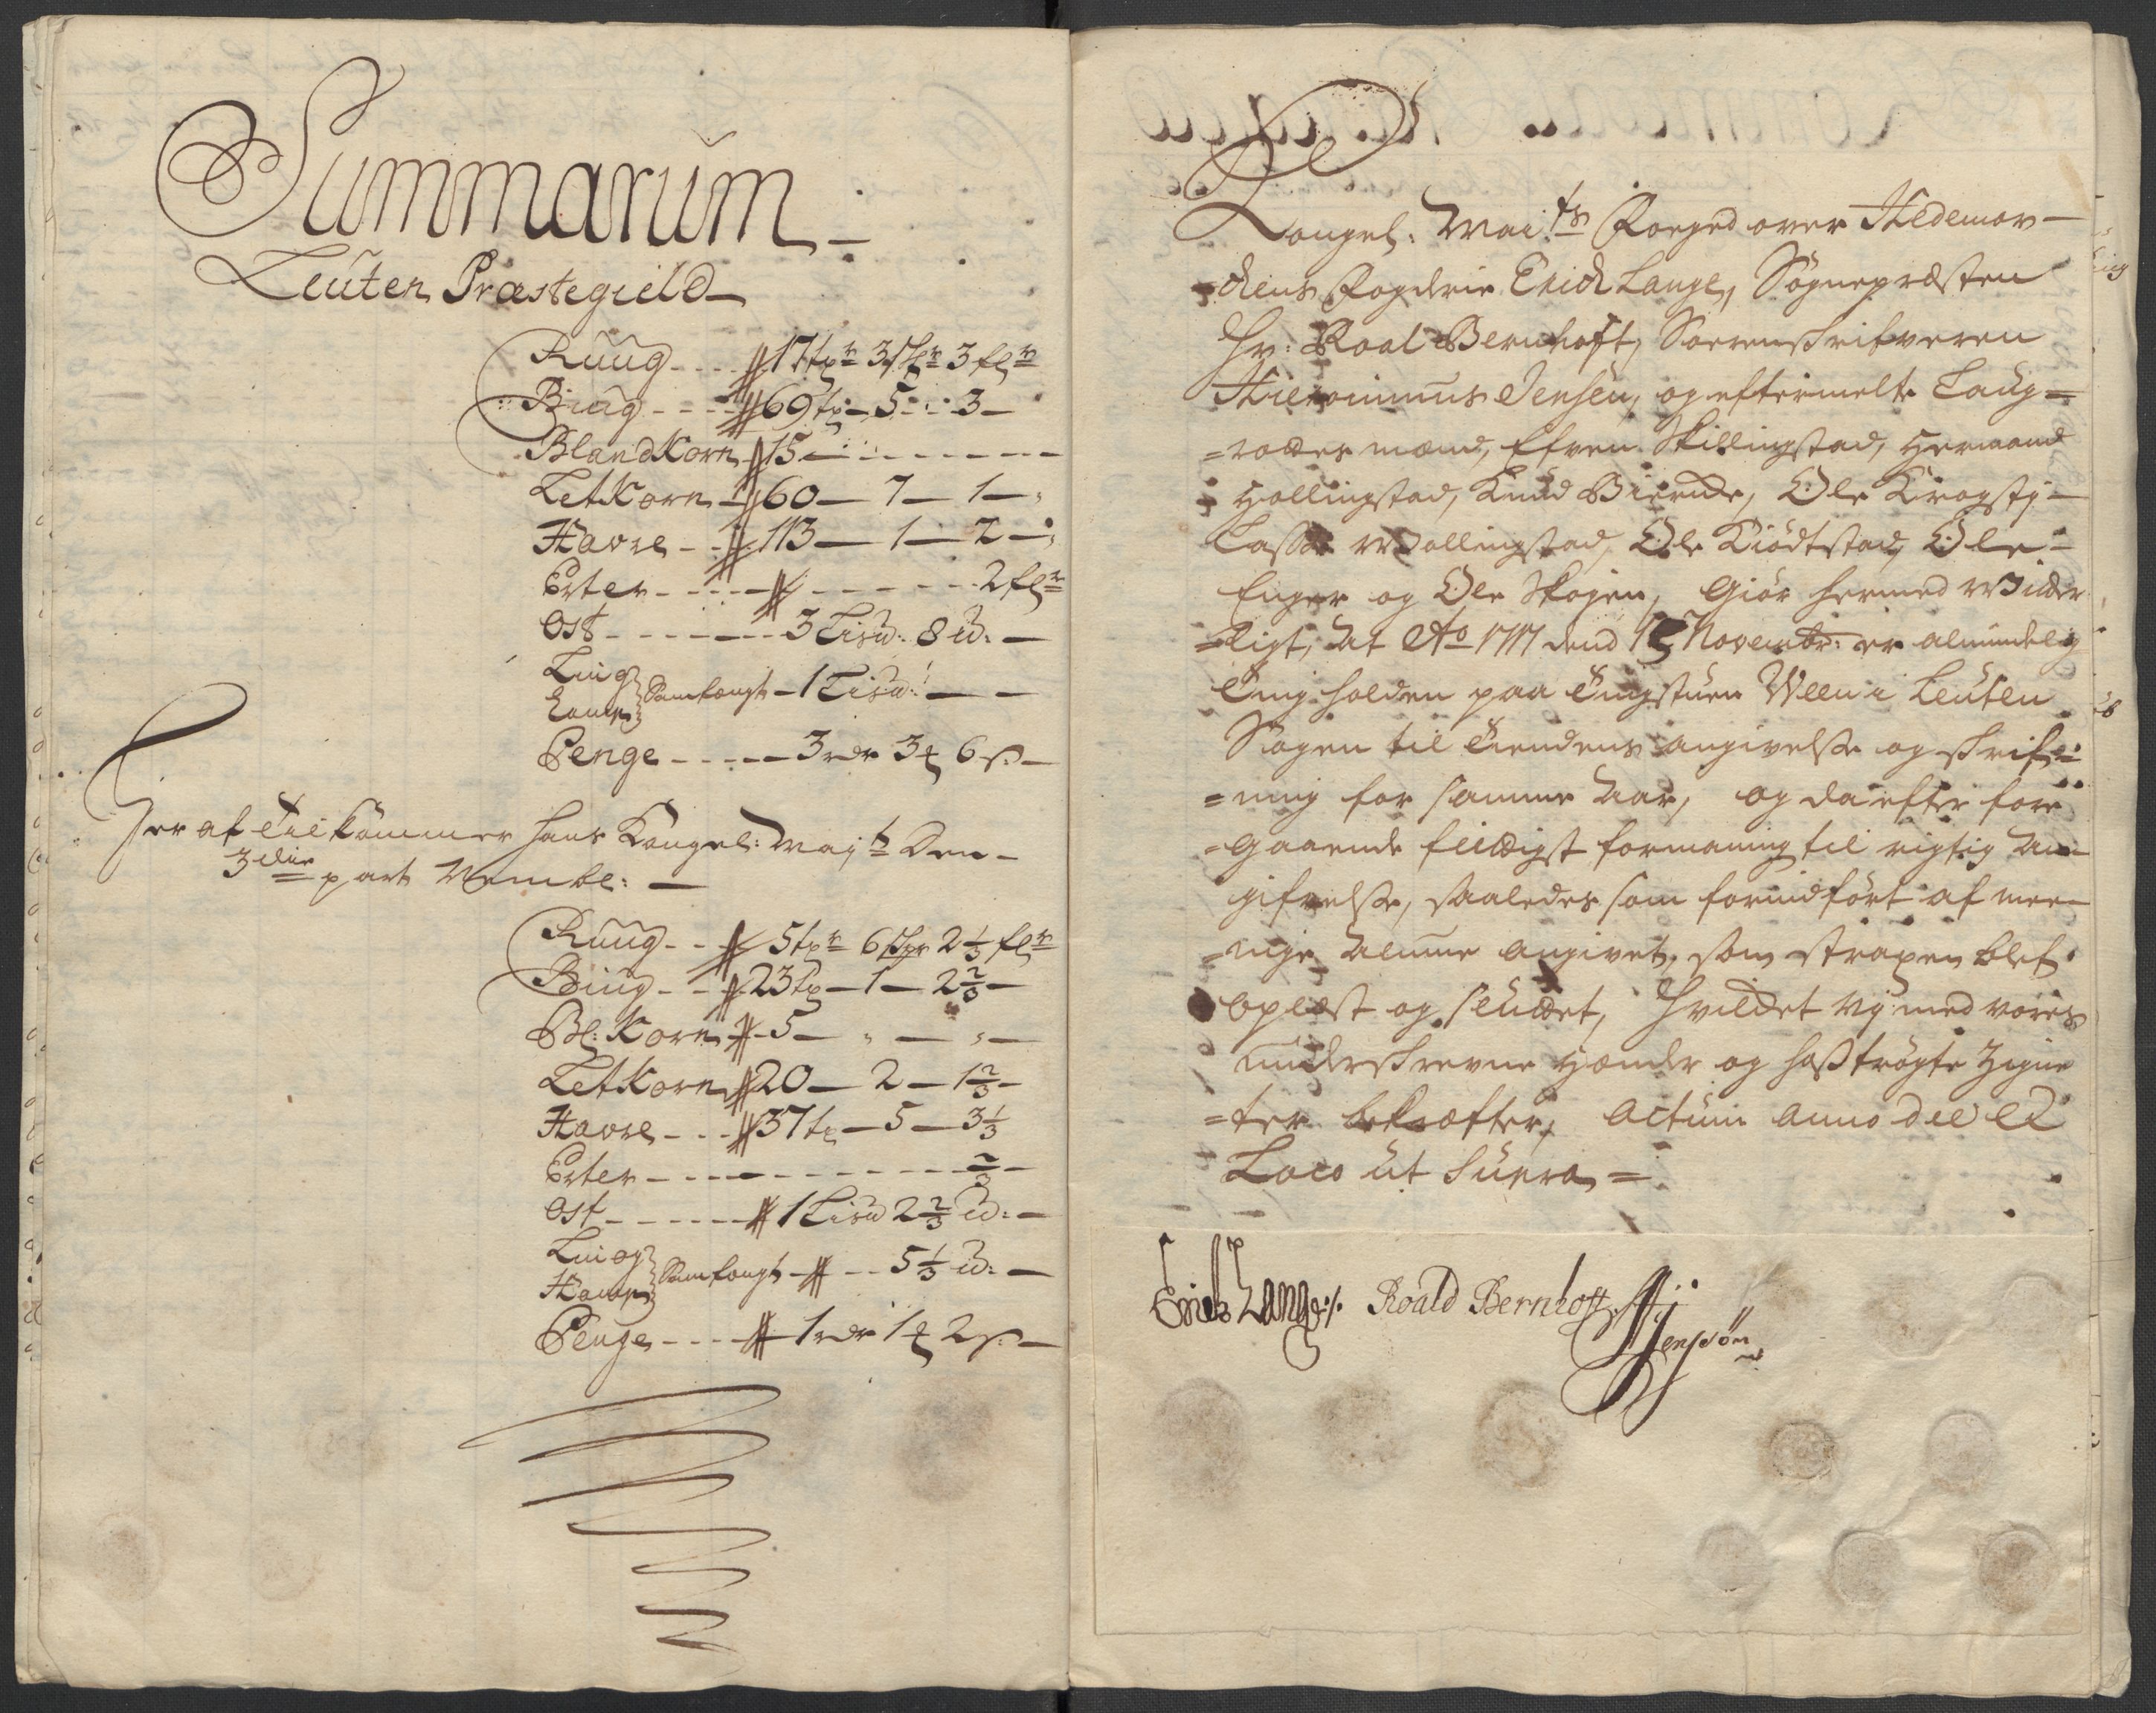 Summarum
Leuten Præstegield
Ruug - - - 17 tpr 3 skpr 3 flr
Biug - - - 69 tp - 5 - 3 -
Bland Korn - 15 - - - - -
Let Korn - 60 - 7 - 1 -
Havre - - 113 - 1 - 2 -
Erter - - - - - - - 2 flr
Ost - - - - - 3 Lisd: 8 d: -
Liin og samfengt - 1 Lisd: - -
Hamp
Penge - - - - 3 rdr 3 [ort] 6 s -
Her af Tilkommer hans Kongel: Mayts Den -
3die part Nembl: -
Ruug - - 5 tpr 6 skpr 2 1/3 flr
Biug - - 23 tp - 1 - 2 2/3 -
Bl: Korn - 5 - " - " -
Let Korn 20 - 2 - 1 2/3 -
Havre - - - 37 tp - 5 - 3 1/3
Erter - - - - - - - 2/3 -
Ost - - - - - 1 Lisd 2 2/3 d: -
Liin og samfengt - - - 5 1/3 d: -
Hamp
Penge - - - - 1 rdr 1 [ort] 2 s -
Kongel: Maits Foeged over Hedemar-
-chens Fogderie Erich Lange, Sognepræsten
Hr: Roal Bernhoft, Sorenskrifveren
Hieronimus Jensen, og eftermelte Laug-
=rættes mænd, Efven Skillingstad, Hermand
Hollingstad, Knud Biercke, Ole Kragsty-
Lasse Wollingstad, Ole Kiödtstad, Ole-
Enger og Ole Skogen, Giör hermed Witter
=ligt, At Ao 1717 dend Novembr: er almindelig
Ting holden paa Tingstuen Ween i Leuten
Sogen til Tiendens angivelse og skrif-
=ning for samme Aar, og da efter fore
-gaaende flitigst formaning til rigtig An-
gifvelse, saaledes som forindfört af mee-
=nige Almue angivet, som straxen blef
oplæst og sluttet, Hvilcket vy med vores
underskrevne Hænder og hoströgte Zigne
=ter bekræfter, Actum anno die et
Loco ut supra =
Erich Lange Roald Bernhoft HJensön